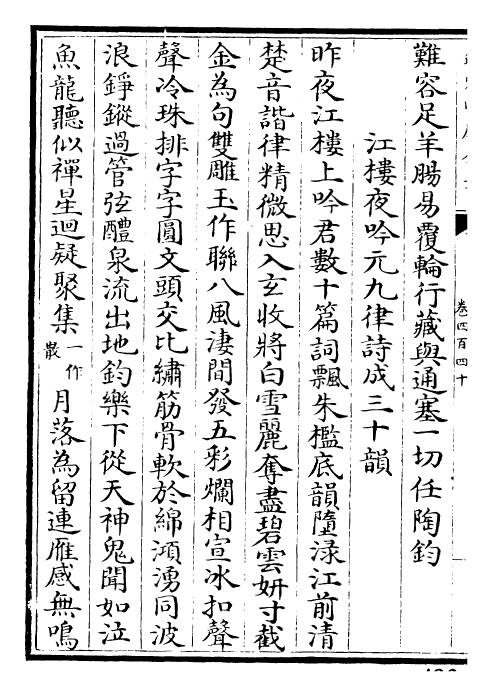 難容足羊腸易覆輪行藏與通塞一切任陶鈞
江樓夜吟元九律詩成三十韻
昨夜江樓上吟君數十篇詞飄朱檻底韻墮渌江前清
楚音諧律精微思入玄收將白雪麗奪盡碧雲妍寸截
金為句雙雕玉作聯八風淒間發五彩爛相宣冰扣聲
聲冷珠排字字圓文頭交比繡筋骨軟於綿澒湧同波
浪錚鏦過管弦醴泉流出地鈞樂下從天神鬼聞如泣
魚龍聽似禪星迴疑聚集一作散月落為留連雁感無鳴
卷四百四十